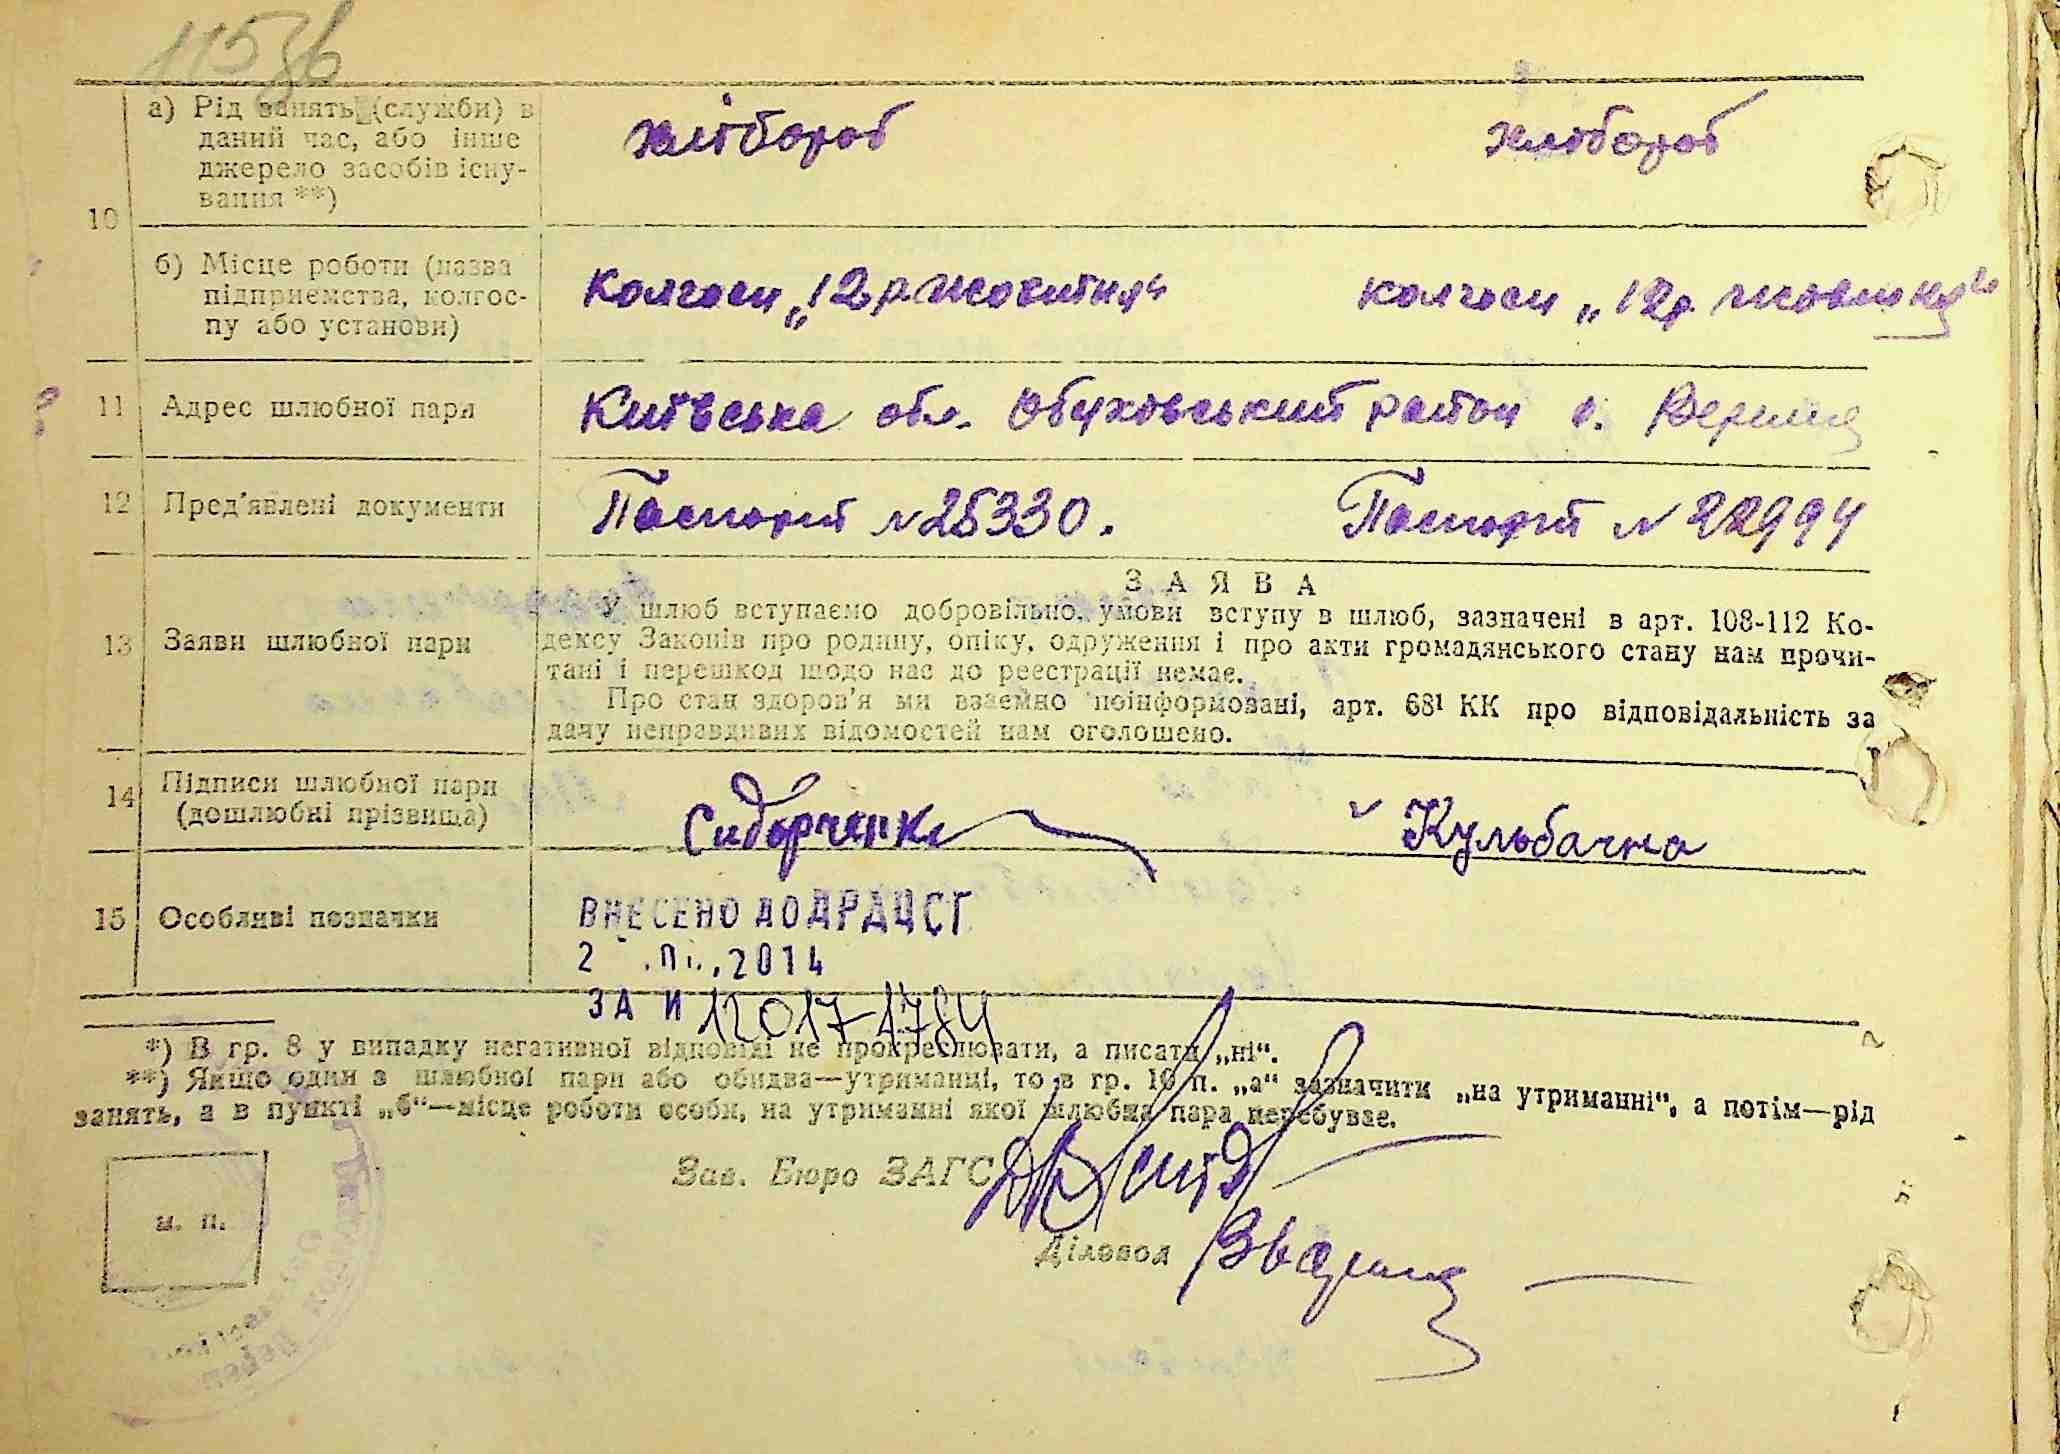 115зв
а) Рід занять (служби) в
даний час, або інше
джерело засобів існу-
вання **)
хлібороб хлібороб
10
б) Місце роботи (назва
підприємства, колгос-
пу або установи)
Колгосп „12 р. Жовтня“ колгосп „12 р. Жовтня“
11 Адрес шлюбної пари Київська обл. Обуховський район с.
12 Пред'явлені документи Паспорт № 25330. Паспорт № 22994
ЗАЯВА
13 Заяви шлюбної пари
У шлюб вступаємо добровільно, умови вступу в шлюб, зазначені в арт. 108-112 Ко-
дексу Законів про родину, опіку, одруження і про акти громадянського стану нам прочи-
тані і перешкод щодо нас до реєстрації немає.
Про стан здоров'я ми взаємно поінформовані, арт. 68¹ КК про відповідальність за
дачу неправдивих відомостей нам оголошено.
14 Підписи шлюбної пари
(дошлюбні прізвища)
Сидорченко Кульбачна
15 Особливі позначки
ВНЕСЕНО ДО ДРАЦСГ
2 2014
ЗА И 12017-1784
*) В гр. 8 у випадку негативної відповіді не прокреслювати, а писати „ні“.
**) Якщо один з шлюбної пари або обидва—утриманці, то в гр. 10 п. „а“ зазначити „на утриманні“, а потім—рід
занять, а в пункті „б“—місце роботи особи, на утриманні якої шлюбна пара перебуває.
Зав. Бюро ЗАГС
Діловод
м. п.